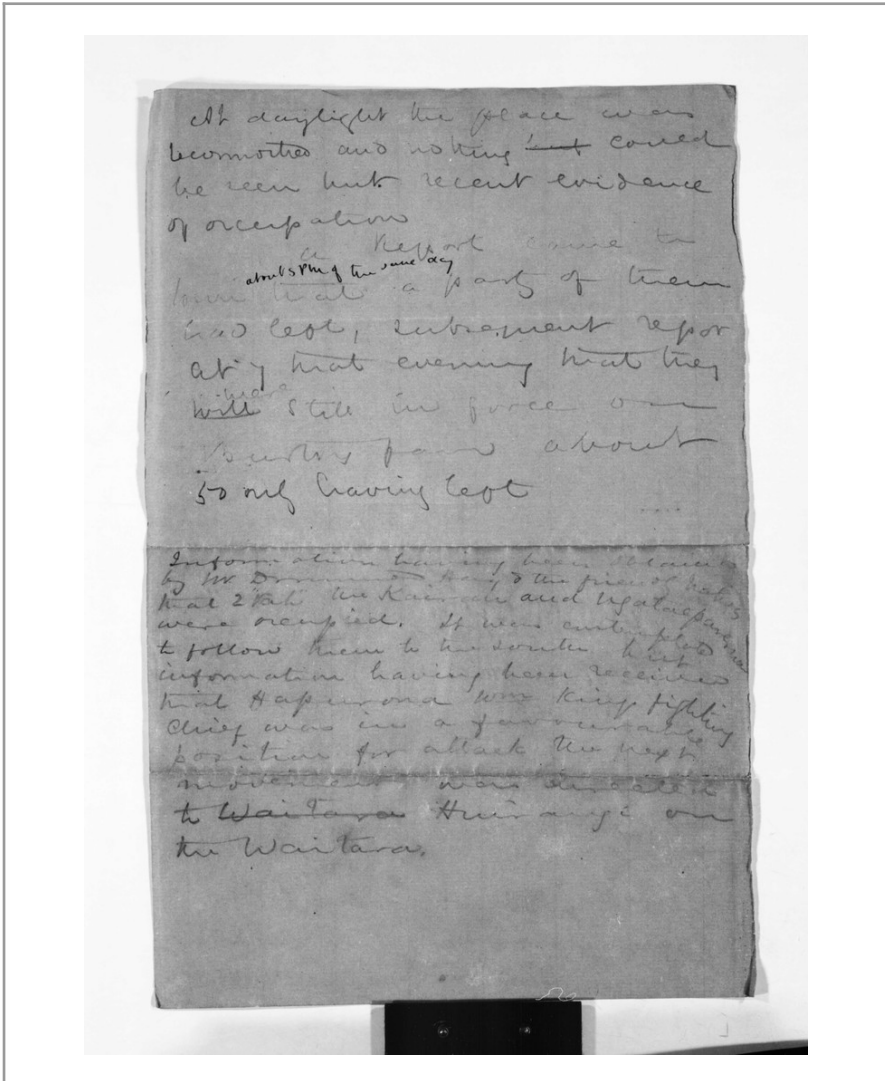 At daylight the place was
reconnoitred and nothing but could
be seen but recent evidence
of occupation
a Report came in
about 5 PM of the same day
that a party of them
had left, subsequent repor
at 7 that evening that they
were
will still in force on
farm about
50 only having left
Information having been obtained
by Mr Drummond Hay & the friendly natives
that 2 Pah the Kaihihi and Ngataiparirua
were occupied. It was contemplated
to follow them to the south but
information having been received
that Hapurona Wm King fighting
chief was in a favourable
position for attack the next
movement was directed
to Waitara Huirangi on
the Waitara.